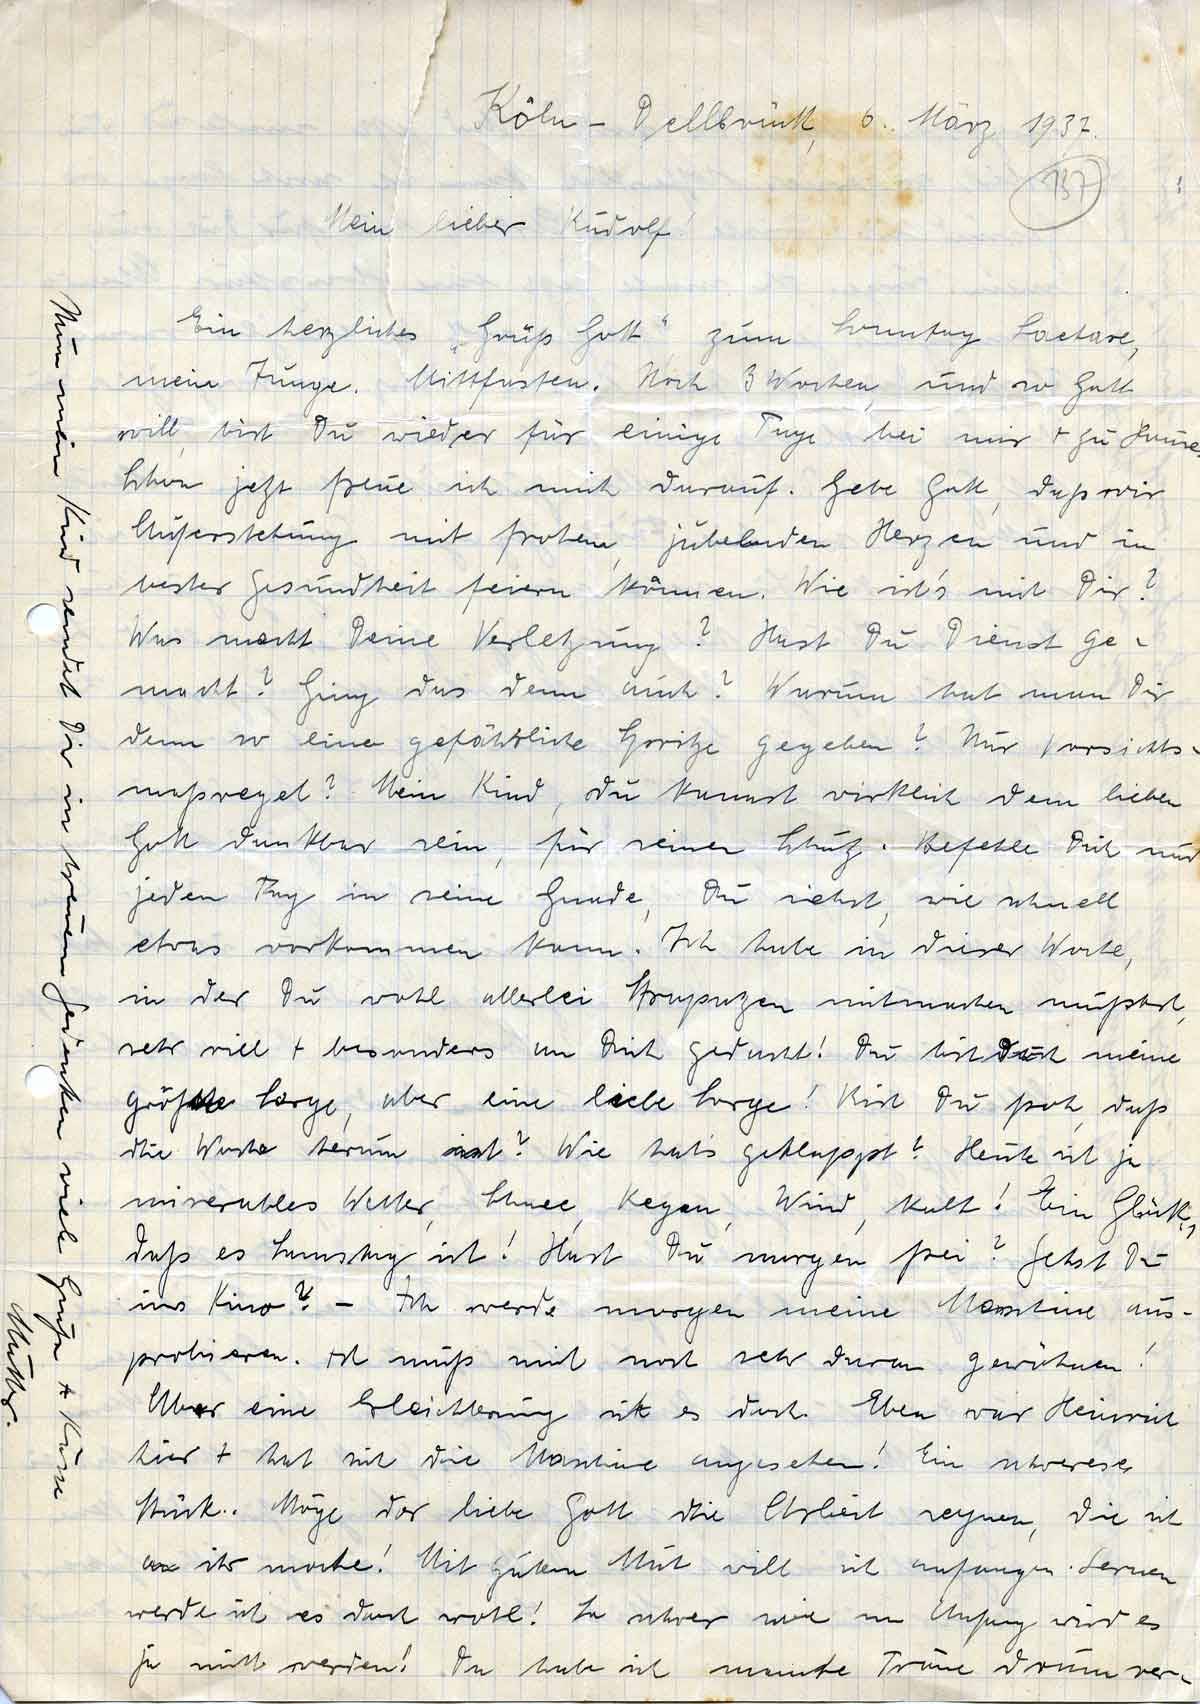 Köln - Dellbrück, 6. März 1937.
137
Mein lieber Rudolf!
Ein herzliches „Grüß Gott“ zum Sonntag Laetare,
mein Junge. Mittfasten. Noch 3 Wochen, und so Gott
will, bist Du wieder für einige Tage bei mir + zu Hause.
Schon jetzt freue ich mich darauf. Gebe Gott, daß wir
Auferstehung mit frohem, jubelnden Herzen und in
bester Gesundheit feiern können. Wie ist's mit Dir?
Was macht Deine Verletzung? Hast Du Dienst ge-
macht? Ging das denn auch? Warum hat man Dir
denn so eine gefährliche Spritze gegeben? Nur Vorsichts-
maßregel? Mein Kind, du kannst wirklich dem lieben
Gott dankbar sein, für seinen Schutz. Befehle Dich nur
jeden Tag in seine Gnade, Du siehst, wie schnell
etwas vorkommen kann. Ich habe in dieser Woche,
in der Du wohl allerlei Strapazen mitmachen mußtest,
sehr viel + besonders an Dich gedacht! Du bist doch meine
größte Sorge, aber eine liebe Sorge! Bist Du froh, daß
die Woche herum ist? Wie hat's geklappt? Heute ist ja
miserables Wetter, Schnee, Regen, Wind, kalt! Ein Glück,
daß es Samstag ist! Hast Du morgen frei? Gehst Du
ins Kino? - Ich werde morgen meine Maschine aus-
probieren. Ich muß mich noch sehr daran gewöhnen!
Aber eine Erleichterung ist es doch. Eben war Heinrich
hier + hat sich die Maschine angesehen! Ein schweres
Stück. Möge der liebe Gott die Arbeit segnen, die ich
an ihr mache! Mit gutem Mut will ich anfangen. Lernen
werde ich es doch wohl! So schwer wie am Anfang wird es
ja nicht werden! Da habe ich manche Träne drum ver-
Nun mein Kind sendet Dir in treuem Gedenken viele Grüße + Küsse
Mutter.